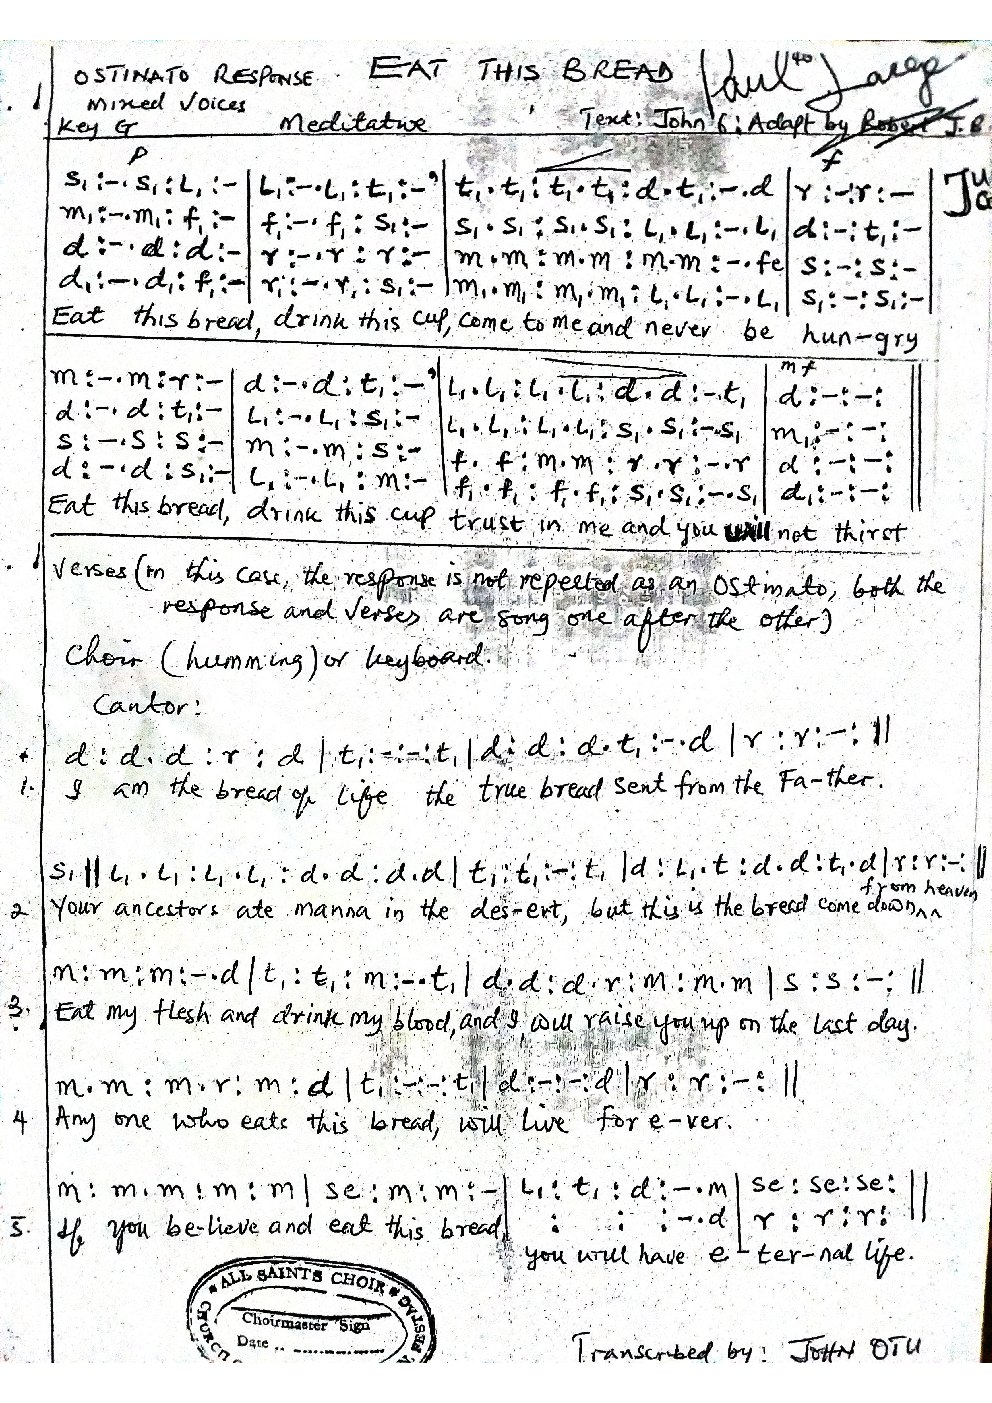 OSTINATO RESPONSE. EAT THIS BREAD
Mixed Voices
Key G Meditative Text: John 6: Adapt by Robert J. B
p f
s₁:-.s₁:l₁:-|l₁:-.l₁:t₁:-’|t₁.t₁:t₁.t₁:d.t₁:-.d|r:-:r:-|
m₁:-.m₁:f₁:-|f₁:-.f₁:s₁:-|s₁.s₁:s₁.s₁:l₁.l₁:-.l₁|d:-:t₁:-|
d:-.d:d:-|r:-.r:r:-|m.m:m.m:m.m:-.fe|s:-:s:-|
d₁:-.d₁:f₁:-|r₁:-.r₁:s₁:-|m₁.m₁:m₁.m₁:l₁.l₁:-.l₁|s₁:-:s₁:-|
Eat this bread, drink this cup, come to me and never be hun-gry
mf
m:-.m:r:-|d:-.d:t₁:-’|l₁.l₁:l₁.l₁:d.d:-.t₁|d:-:-:||
d:-.d:t₁:-|l₁:-.l₁:s₁:-|l₁.l₁:l₁.l₁:s₁.s₁:-.s₁|m₁:-:-:||
s:-.s:s:-|m:-.m:s:-|f.f:m.m:r.r:-.r|d:-:-:||
d:-.d:s₁:-|l₁:-.l₁:m:-|f₁.f₁:f₁.f₁:s₁.s₁:-.s₁|d₁:-:-:||
Eat this bread, drink this cup trust in me and you will not thirst
Verses (in this case, the response is not repeated as an Ostinato, both the
response and verses are song one after the other)
Choir (humming) or keyboard.
Cantor:
d:d.d:r:d|t₁:-:-:t₁|d:d:d.t₁:-.d|r:r:-:||
1. I am the bread of life the true bread sent from the Fa-ther.
s₁||l₁.l₁:l₁.l₁:d.d:d.d|t₁:t₁:-:t₁|d:l₁.t:d.d:t₁.d|r:r:-:||
from heaven
2 Your ancestors ate manna in the des-ert, but this is the bread come down^^
m:m:m:-.d|t₁:t₁:m:-.t₁|d.d:d.r:m:m.m|s:s:-:||
3. Eat my flesh and drink my blood, and I will raise you up on the last day.
m.m:m.r:m:d|t₁:-:-:t₁|d:-:-:d|r:r:-:||
4 Any one who eats this bread, will live for e-ver.
m:m.m:m:m|se:m:m:-|l₁:t₁:d:-.m|se:se:se:||
: : :-.d|r:r:r:
5. If you be-lieve and eat this bread,
you will have e-ter-nal life.
ALL SAINTS CHOIR
Choirmaster Sign
Date ..............
Transcribed by: JOHN OTU